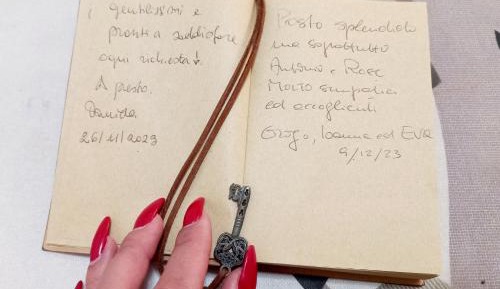 gentilissimi e
pronti a soddisfare
ogni richiesta!
A presto.
Daniela
26/11/2023
Posto splendido
ma soprattutto
Antonio e Rose
Molto simpatici
ed accoglienti
Ioanna ed EVA
9/12/23